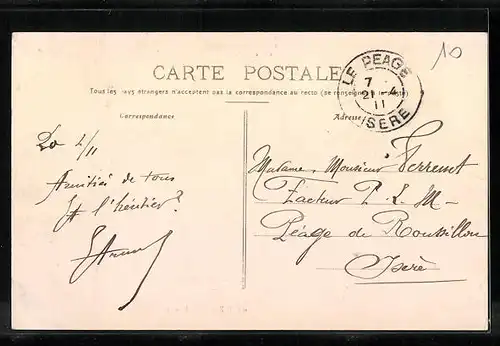 10
CARTE POSTALE
Tous les pays étrangers n'acceptent pas la correspondance au recto (se renseigner à la poste)
Correspondance
Adresse
LE PEAGE
7
21 - 4
11
ISERE
20 4/11
Amitiés de tous
Et l'héritier?
Madame, Monsieur
Facteur P. L. M -
Péage de Roussillon
Isère